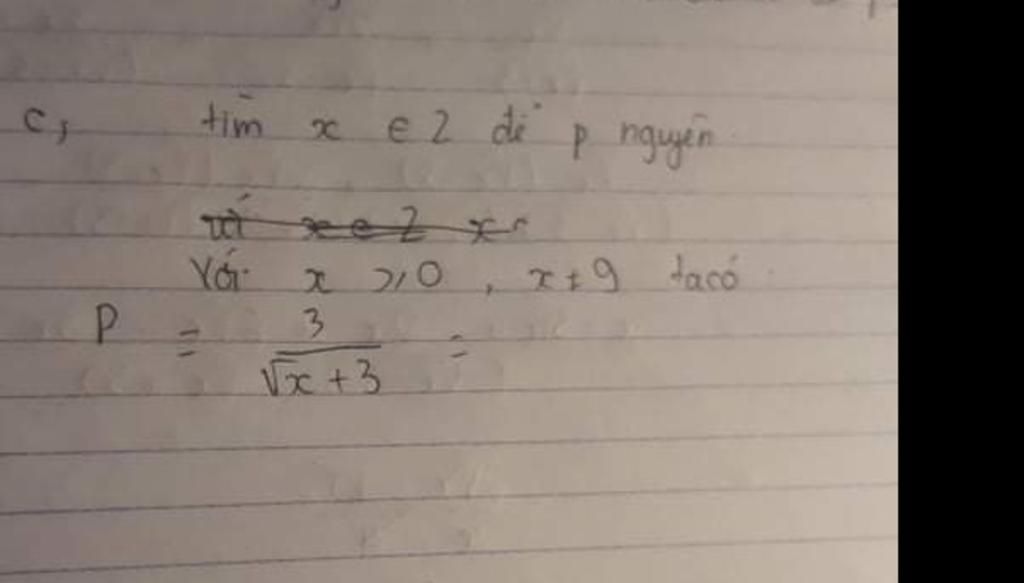 c, tìm x ∈ Z để p nguyên
Với x ≥ 0, x ≠ 9 ta có
P = 3/(√x + 3) =